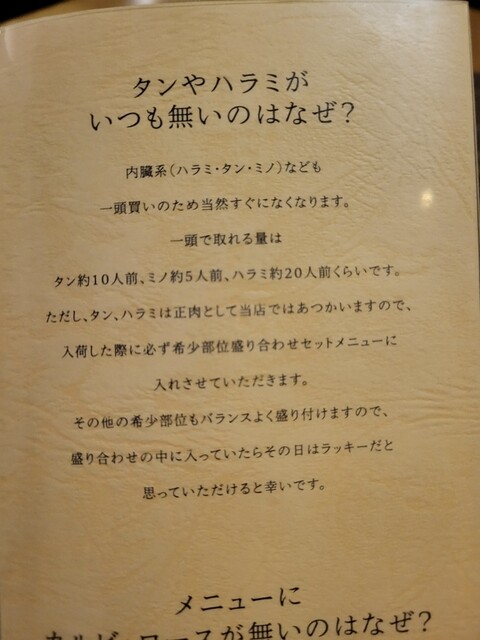 タンやハラミが
いつも無いのはなぜ？
内臓系（ハラミ・タン・ミノ）なども
一頭買いのため当然すぐになくなります。
一頭で取れる量は
タン約10人前、ミノ約5人前、ハラミ約20人前くらいです。
ただし、タン、ハラミは正肉として当店ではあつかいますので、
入荷した際に必ず希少部位盛り合わせセットメニューに
入れさせていただきます。
その他の希少部位もバランスよく盛り付けますので、
盛り合わせの中に入っていたらその日はラッキーだと
思っていただけると幸いです。
メニューに
カルビ、ロースが無いのはなぜ？